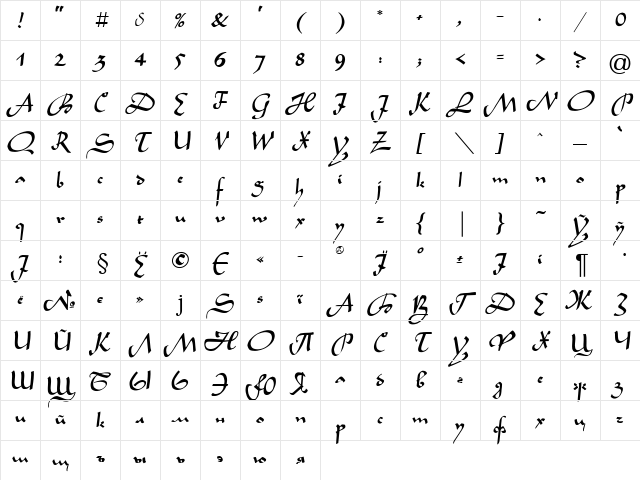 ! " # $ % & ' ( ) * + , - . / 0
1 2 3 4 5 6 7 8 9 : ; < = > ? @
A B C D E F G H I J K L M N O P
Q R S T U V W X Y Z [ \ ] ^ _ `
a b c d e f g h i j k l m n o p
q r s t u v w x y z { | } ~ Ў ў
J : § Ё © Є « - ® Ї ° ± І і ¶ ·
ё № е » j S s ї А Б В Г Д Е Ж З
И Й К Л М Н О П Р С Т У Ф Х Ц Ч
Ш Щ Ъ Ы Ь Э Ю Я а б в г д е ж з
и й к л м н о п р с т у ф х ц ч
ш щ ъ ы ь э ю я